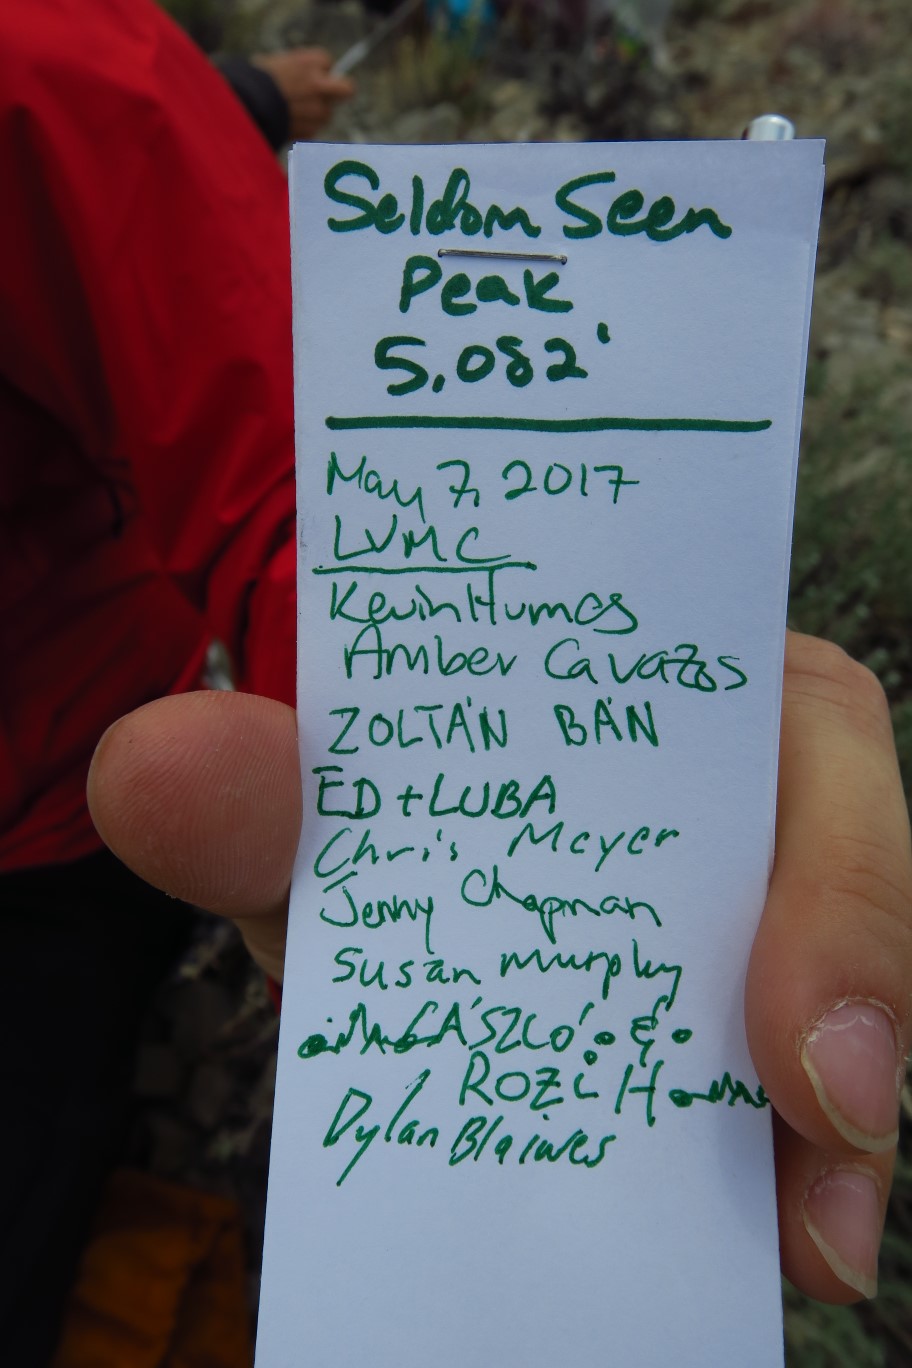 Seldom Seen
Peak
5,082'
May 7, 2017
LVMC
Kevin Humes
Amber Cavazos
ZOLTÁN BÁN
ED + LUBA
Chris Meyer
Jenny Chapman
Susan Murphy
LÁSZLÓ &
ROZI H
Dylan Blaiwes